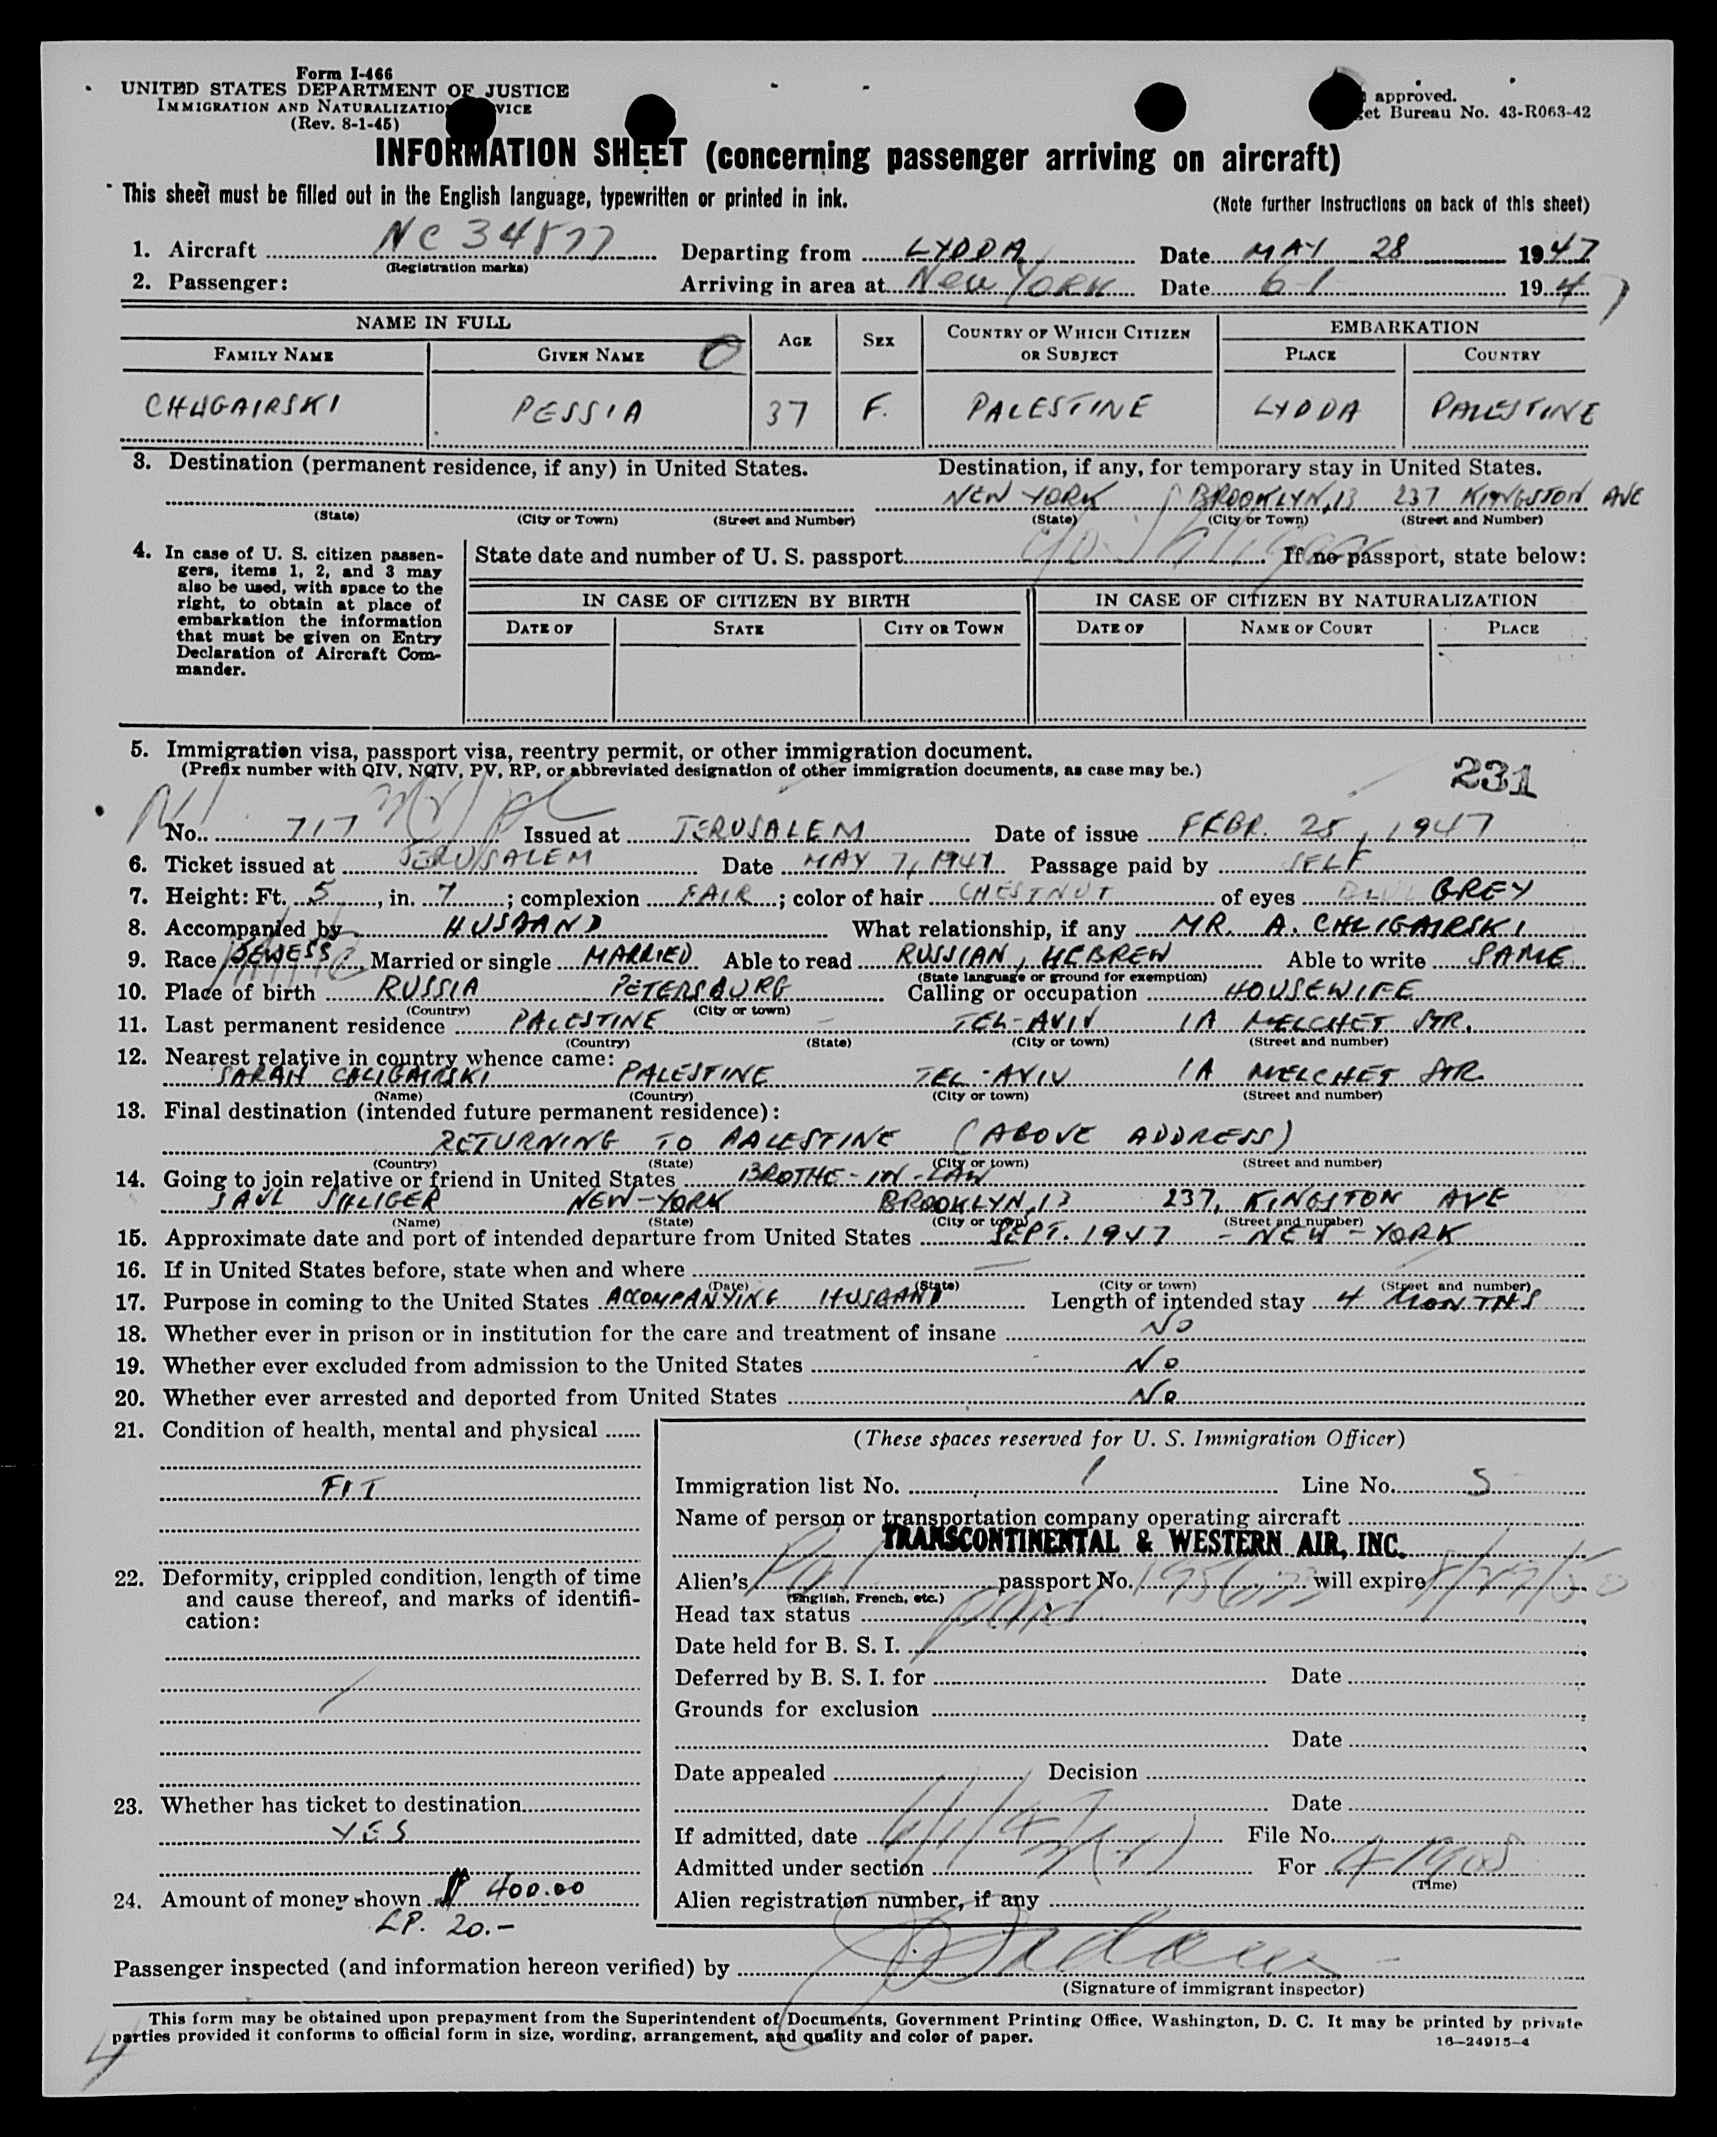 Form I-466
UNITED STATES DEPARTMENT OF JUSTICE
IMMIGRATION AND NATURALIZATION VICE
(Rev. 8-1-45)
approved.
et Bureau No. 43-R063-42
INFORMATION SHEET (concerning passenger arriving on aircraft)
This sheet must be filled out in the English language, typewritten or printed in ink.
(Note further instructions on back of this sheet)
1. Aircraft NC 34577 Departing from LYDDA Date MAY 28 1947
(Registration marks)
2. Passenger: Arriving in area at New York Date 6-1 1947
NAME IN FULL AGE SEX COUNTRY OF WHICH CITIZEN OR SUBJECT EMBARKATION
FAMILY NAME GIVEN NAME PLACE COUNTRY
CHLIGAIRSKI PESSIA 37 F. PALESTINE LYDDA PALESTINE
3. Destination (permanent residence, if any) in United States. Destination, if any, for temporary stay in United States.
NEW YORK BROOKLYN,13 237 KINGSTON AVE
(State) (City or Town) (Street and Number) (State) (City or Town) (Street and Number)
4. In case of U. S. citizen passengers, items 1, 2, and 3 may also be used, with space to the right, to obtain at place of embarkation the information that must be given on Entry Declaration of Aircraft Commander.
State date and number of U. S. passport If no passport, state below:
IN CASE OF CITIZEN BY BIRTH IN CASE OF CITIZEN BY NATURALIZATION
DATE OF STATE CITY OR TOWN DATE OF NAME OF COURT PLACE
5. Immigration visa, passport visa, reentry permit, or other immigration document.
(Prefix number with QIV, NQIV, PV, RP, or abbreviated designation of other immigration documents, as case may be.)
231
No. 717 Issued at JERUSALEM Date of issue FEBR. 25, 1947
6. Ticket issued at JERUSALEM Date MAY 7, 1947 Passage paid by SELF
7. Height: Ft. 5, in. 7; complexion FAIR; color of hair CHESTNUT of eyes GREY
8. Accompanied by HUSBAND What relationship, if any MR. A. CHLIGAIRSKI
9. Race JEWESS Married or single MARRIED Able to read RUSSIAN, HEBREW Able to write SAME
(State language or ground for exemption)
10. Place of birth RUSSIA PETERSBURG Calling or occupation HOUSEWIFE
(Country) (City or town)
11. Last permanent residence PALESTINE – TEL-AVIV 1A MELCHET STR.
(Country) (State) (City or town) (Street and number)
12. Nearest relative in country whence came:
SARAH CHLIGAIRSKI PALESTINE TEL-AVIV 1A MELCHET STR.
(Name) (Country) (City or town) (Street and number)
13. Final destination (intended future permanent residence):
RETURNING TO PALESTINE (ABOVE ADDRESS)
(Country) (State) (City or town) (Street and number)
14. Going to join relative or friend in United States BROTHE-IN-LAW
SAUL SHLIGER NEW-YORK BROOKLYN,13 237, KINGSTON AVE
(Name) (State) (City or town) (Street and number)
15. Approximate date and port of intended departure from United States SEPT. 1947 - NEW-YORK
16. If in United States before, state when and where —
(Date) (State) (City or town) (Street and number)
17. Purpose in coming to the United States ACCOMPANYING HUSBAND Length of intended stay 4 MONTHS
18. Whether ever in prison or in institution for the care and treatment of insane NO
19. Whether ever excluded from admission to the United States NO
20. Whether ever arrested and deported from United States NO
21. Condition of health, mental and physical
FIT
22. Deformity, crippled condition, length of time and cause thereof, and marks of identification:
23. Whether has ticket to destination
YES
24. Amount of money shown $ 400.00
LP. 20.-
(These spaces reserved for U. S. Immigration Officer)
Immigration list No. 1 Line No. 5
Name of person or transportation company operating aircraft
TRANSCONTINENTAL & WESTERN AIR, INC.
Alien's Pal passport No. 195673 will expire
(English, French, etc.)
Head tax status paid
Date held for B. S. I.
Deferred by B. S. I. for Date
Grounds for exclusion
Date
Date appealed Decision
Date
If admitted, date 6/1/47 File No.
Admitted under section 3(2) For 4 mos
(Time)
Alien registration number, if any
Passenger inspected (and information hereon verified) by
(Signature of immigrant inspector)
This form may be obtained upon prepayment from the Superintendent of Documents, Government Printing Office, Washington, D. C. It may be printed by private
parties provided it conforms to official form in size, wording, arrangement, and quality and color of paper.
16—24915-4